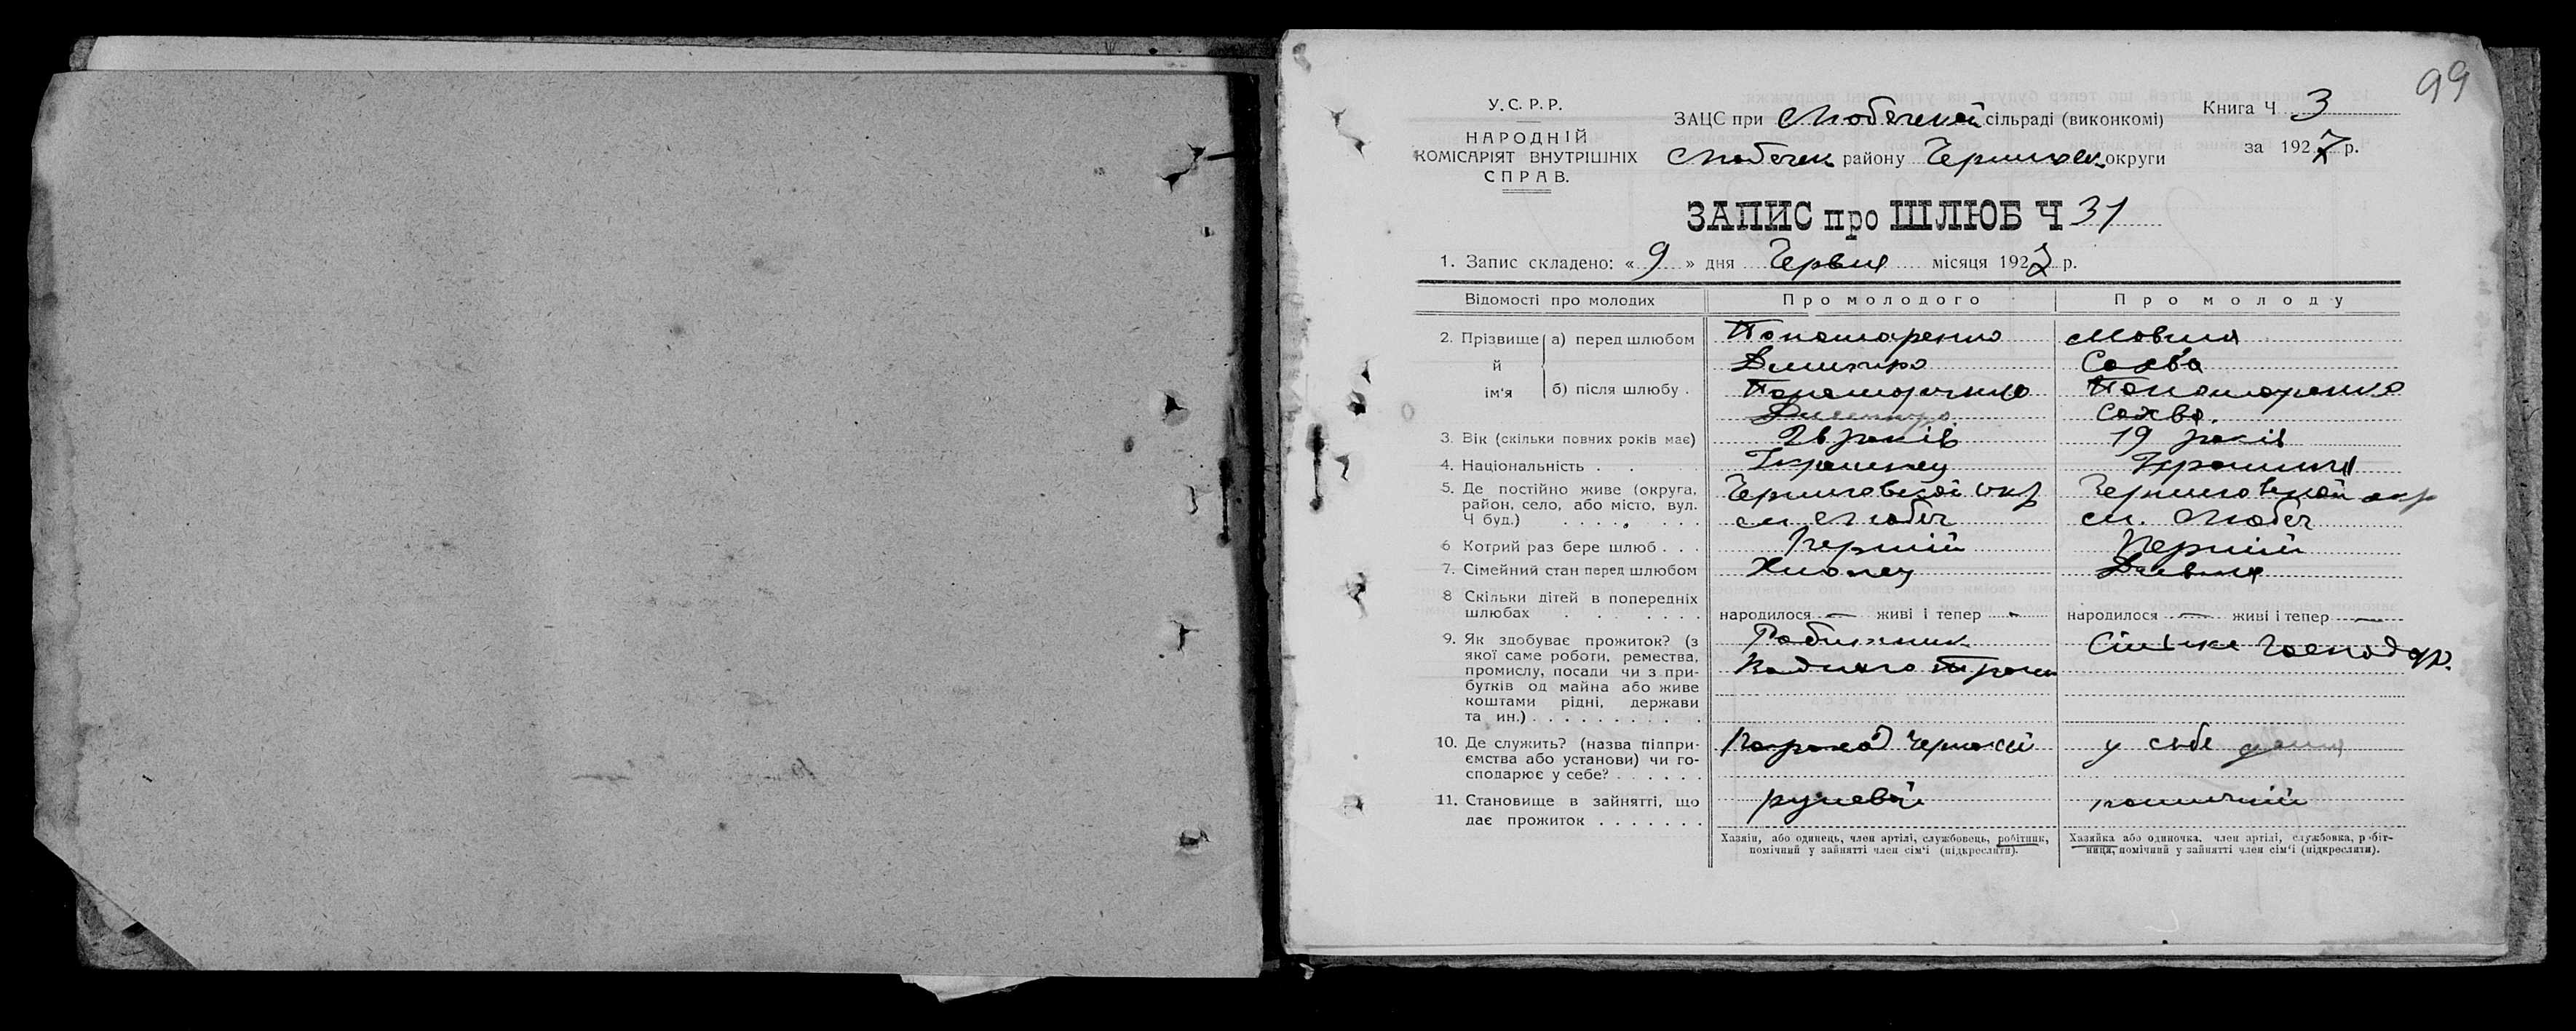 99
У.С.Р.Р.
НАРОДНІЙ
КОМІСАРІЯТ ВНУТРІШНІХ
СПРАВ.
ЗАЦС при Любечской сільраді (виконкомі)
Любечск району Черниговск округи
Книга Ч 3
за 1927 р.
ЗАПИС про ШЛЮБ Ч 31
1. Запис складено: « 9 » дня Червня місяця 1927 р.
Відомості про молодих Про молодого Про молоду
2. Прізвище й ім'я а) перед шлюбом Пономаренко Мовчан
Дмитро Софва
б) після шлюбу . Пономаренко Пономаренко
Дмитро Сохва.
3. Вік (скільки повних років має) 26 років 19 років
4. Національність . . Українец Українка
5. Де постійно живе (округа, район, село, або місто, вул. Ч буд.) . . . . . . . Черниговской окр Черниговской окр
см. Любеч см. Любеч
6 Котрий раз бере шлюб . . . Первий Первий
7. Сімейний стан перед шлюбом Хлопец Дівка
8 Скільки дітей в попередніх шлюбах . . . . . народилося — живі і тепер - народилося — живі і тепер —
9. Як здобуває прожиток? (з якої саме роботи, ремества, промислу, посади чи з прибутків од майна або живе коштами рідні, держави та ин.) . . . . . . . . . Робітник Сільске господар.
Водного
10. Де служить? (назва підприємства або установи) чи господарює у себе? . . . . . . Пароход у себе дома
11. Становище в зайнятті, що дає прожиток . . . . . . . рулевой помічний
Хазяїн, або одинець, член артілі, службовець, робітник, помічний у зайнятті член сім'ї (підкреслити).
Хазяйка або одиночка, член артілі, службовка, робітниця, помічний у зайнятті член сім'ї (підкреслити).